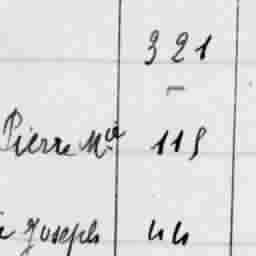 321
–
Pierre Mie 115
Joseph 44